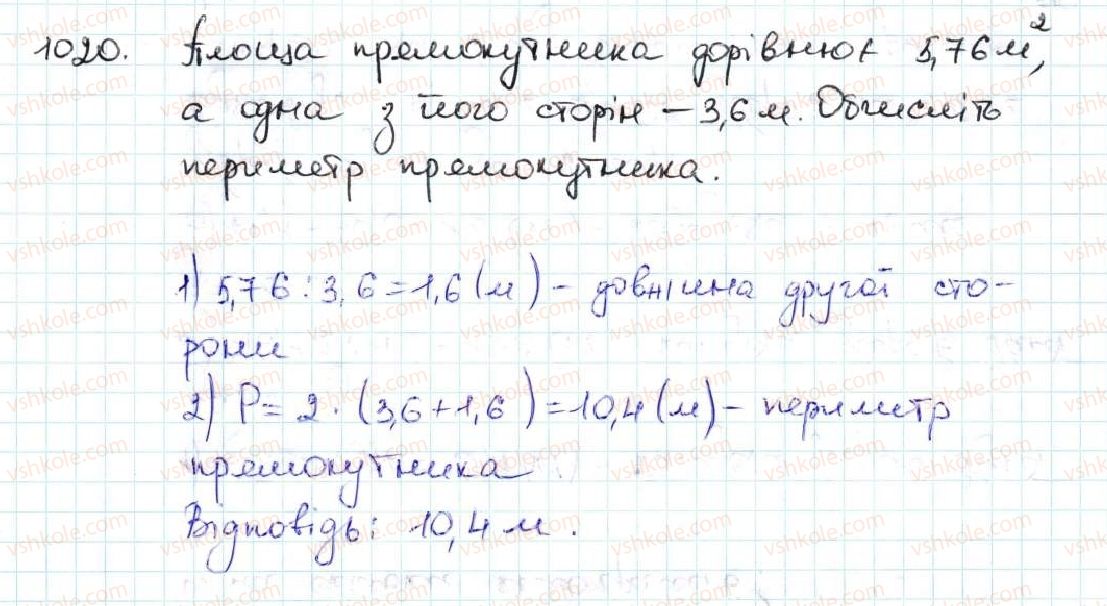 1020. Площа прямокутника дорівнює 5,76 м²,
а одна з його сторін – 3,6 м. Обчисліть
периметр прямокутника.
1) 5,76 : 3,6 = 1,6 (м) – довжина другої сто-
рони
2) P = 2 · (3,6 + 1,6) = 10,4 (м) – периметр
прямокутника
Відповідь: 10,4 м.
vshkole.com